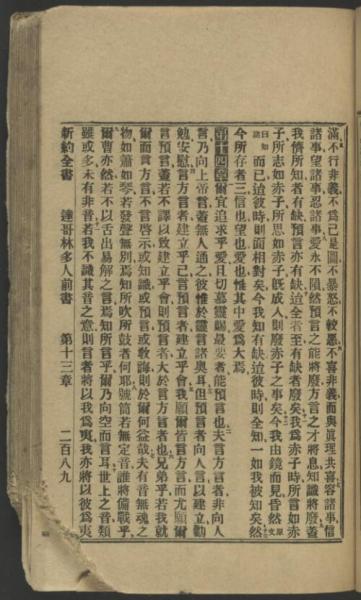 滿不行非義不爲己是圖不暴怒不較惡不喜非義而與眞理共喜容諸事信
諸事望諸事忍諸事愛永不隕然預言之能將廢方言之才將息知識將廢蓋
我儕所知者有缺預言亦有缺迨全者至有缺者廢矣我爲赤子時所言如赤
子所志如赤子所思如赤子旣成人則廢赤子之事矣今我由鏡而見昏然原文
曰如謎而已迨彼時則面相對矣今我知有缺迨彼時則全知一如我被知矣然
今所存者三信也望也愛也惟其中愛爲大焉
第十四章爾宜追求乎愛且切慕靈賜最要者能預言也夫言方言者非向人
言乃向上帝言蓋無人通之彼惟於靈言諸奧耳但預言者向人言以建立勸
勉安慰言方言者建立乎己言預言者建立乎會我願爾皆言方言而尤願爾
言預言蓋若不譯以致建立乎會則預言者大於言方言者也兄弟乎若我就
爾而言方言不言啓示或知識或預言或教誨則於爾何益哉夫有音無魂之
物如簫如琴若發聲無別焉知所吹所鼓者何耶號筒若無定音誰將備戰乎
爾曹亦然若不以舌出易解之言焉知所言乎爾乃向空而言耳世上之音類
雖或多未有非音若我不識其音之意則言者將以我爲夷我亦將以彼爲夷
新約全書 達哥林多人前書 第十三章 二百八九